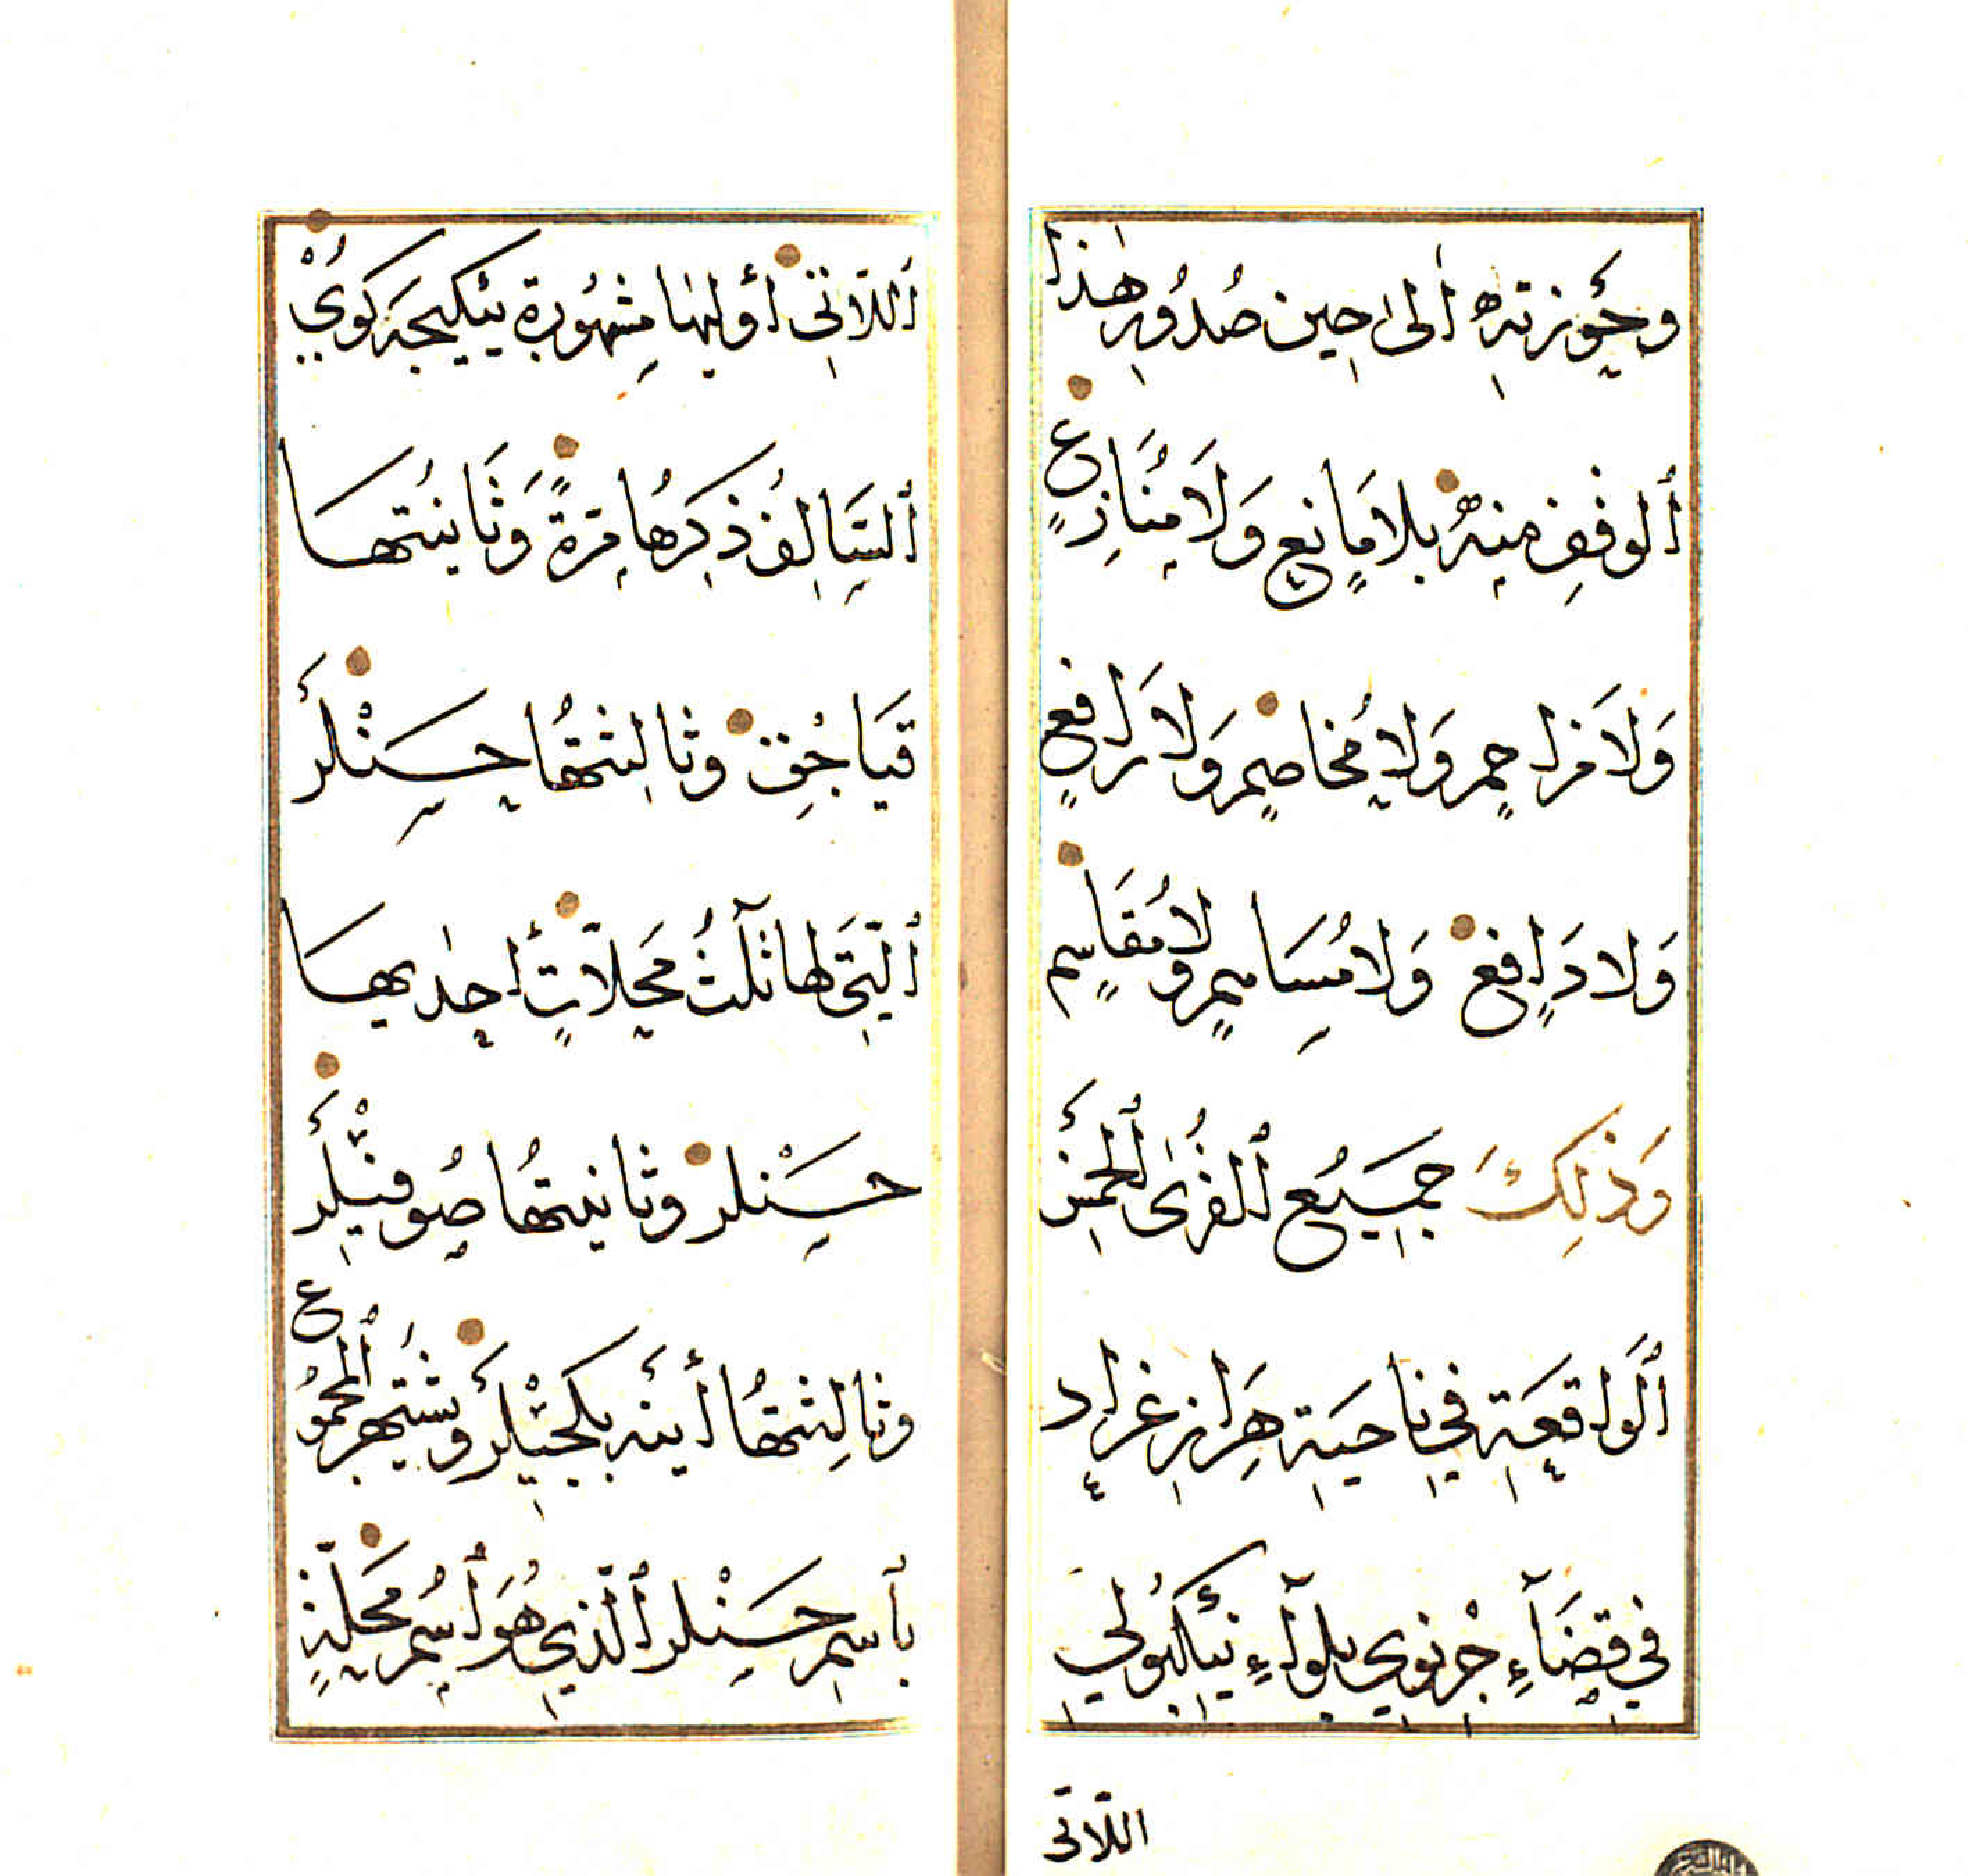 وَحَوْزَتِهِ إِلى حِينِ صُدُورِ هٰذَا
ٱلوقفِ مِنهُ بلا مَانِعٍ وَلَا مُنَازِعٍ
وَلَا مُزاحِمٍ وَلا مُخاصِمٍ وَلا رَافِعٍ
وَلا دَافِعٍ وَلا مُسَاهِمٍ وَلا مُقَاسِمٍ
وَذٰلِكَ جَمِيعُ ٱلقُرٰى ٱلخَمْسِ
ٱلوَاقِعَةِ فِي نَاحِيَةِ هَزَارْغِرَاد
فِي قَضَآءِ جَرْنَوِي بِلِوَآءِ نِيكَبُولِي
اللّاتى
ٱللَّاتِي أُولٰيهَا مَشْهُورَة بِيكِيجَه كُويْ
ٱلسَّالِفُ ذِكرُهَا مَرَّةً وَثَانِيَتُهَا
قَيَاجُق وثَالِثَتُهَا حَسَنْلَر
ٱلَّتِي لَهَا ثَلٰثُ مَحَلَّاتٍ إِحدٰيهَا
حَسَنْلر وثَانِيَتُهَا صُوفِيْلَر
وثَالِثَتُهَا أَيْنَه بَكجِيْلَر وَيَشْتَهِرُ ٱلمَجْمُوع
بِٱسمِ حَسَنْلر ٱلَّذِي هُوَ ٱسْمُ مَحَلَّةٍ